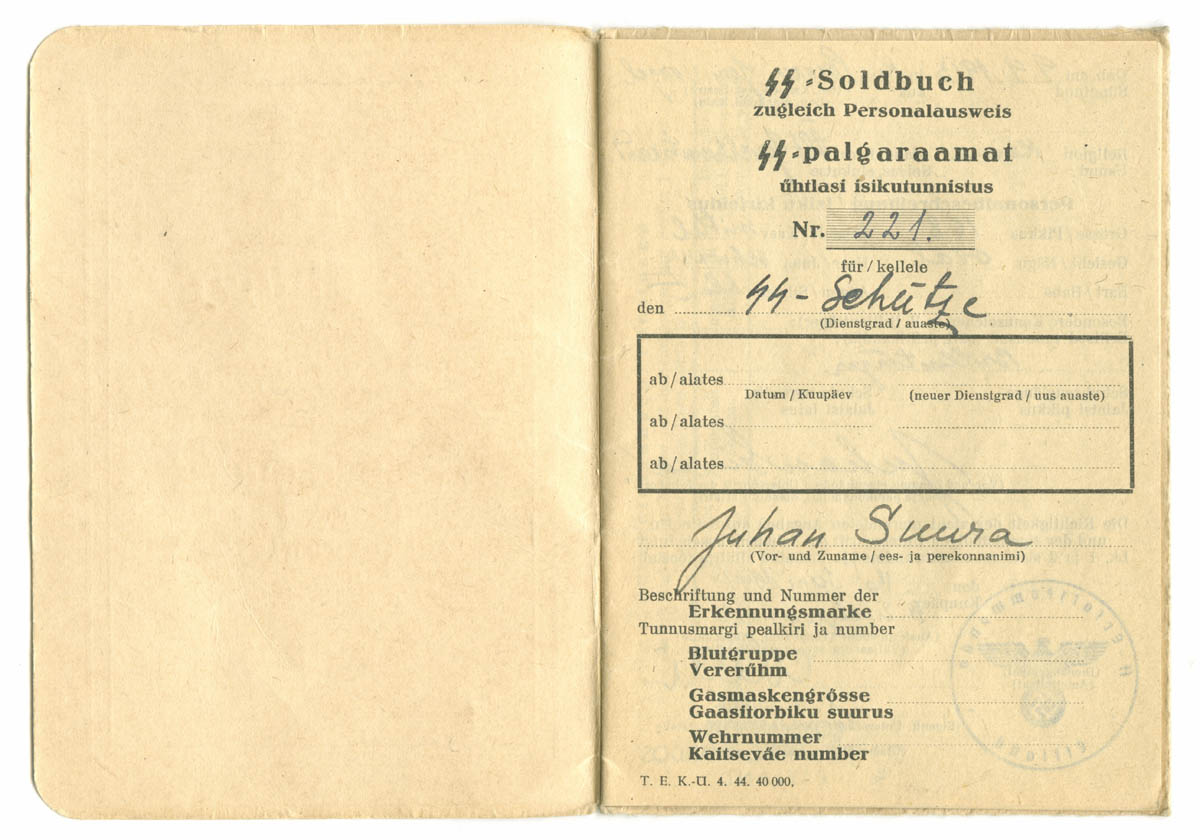 ᛋᛋ-Soldbuch
zugleich Personalausweis
ᛋᛋ-palgaraamat
űhtlasi isikutunnistus
Nr. 221.
für/kellele
den ᛋᛋ-Schütze
(Dienstgrad / auaste)
ab/alates
Datum / Kuupäev (neuer Dienstgrad / uus auaste)
ab/alates
ab/alates
Juhan Suura
(Vor- und Zuname / ees- ja perekonnanimi)
Beschriftung und Nummer der
Erkennungsmarke
Tunnusmargi pealkiri ja number
Blutgruppe
Vererűhm
Gasmaskengrősse
Gaasitorbiku suurus
Wehrnummer
Kaitseväe number
T. E. K.-Ü. 4. 44. 40 000.